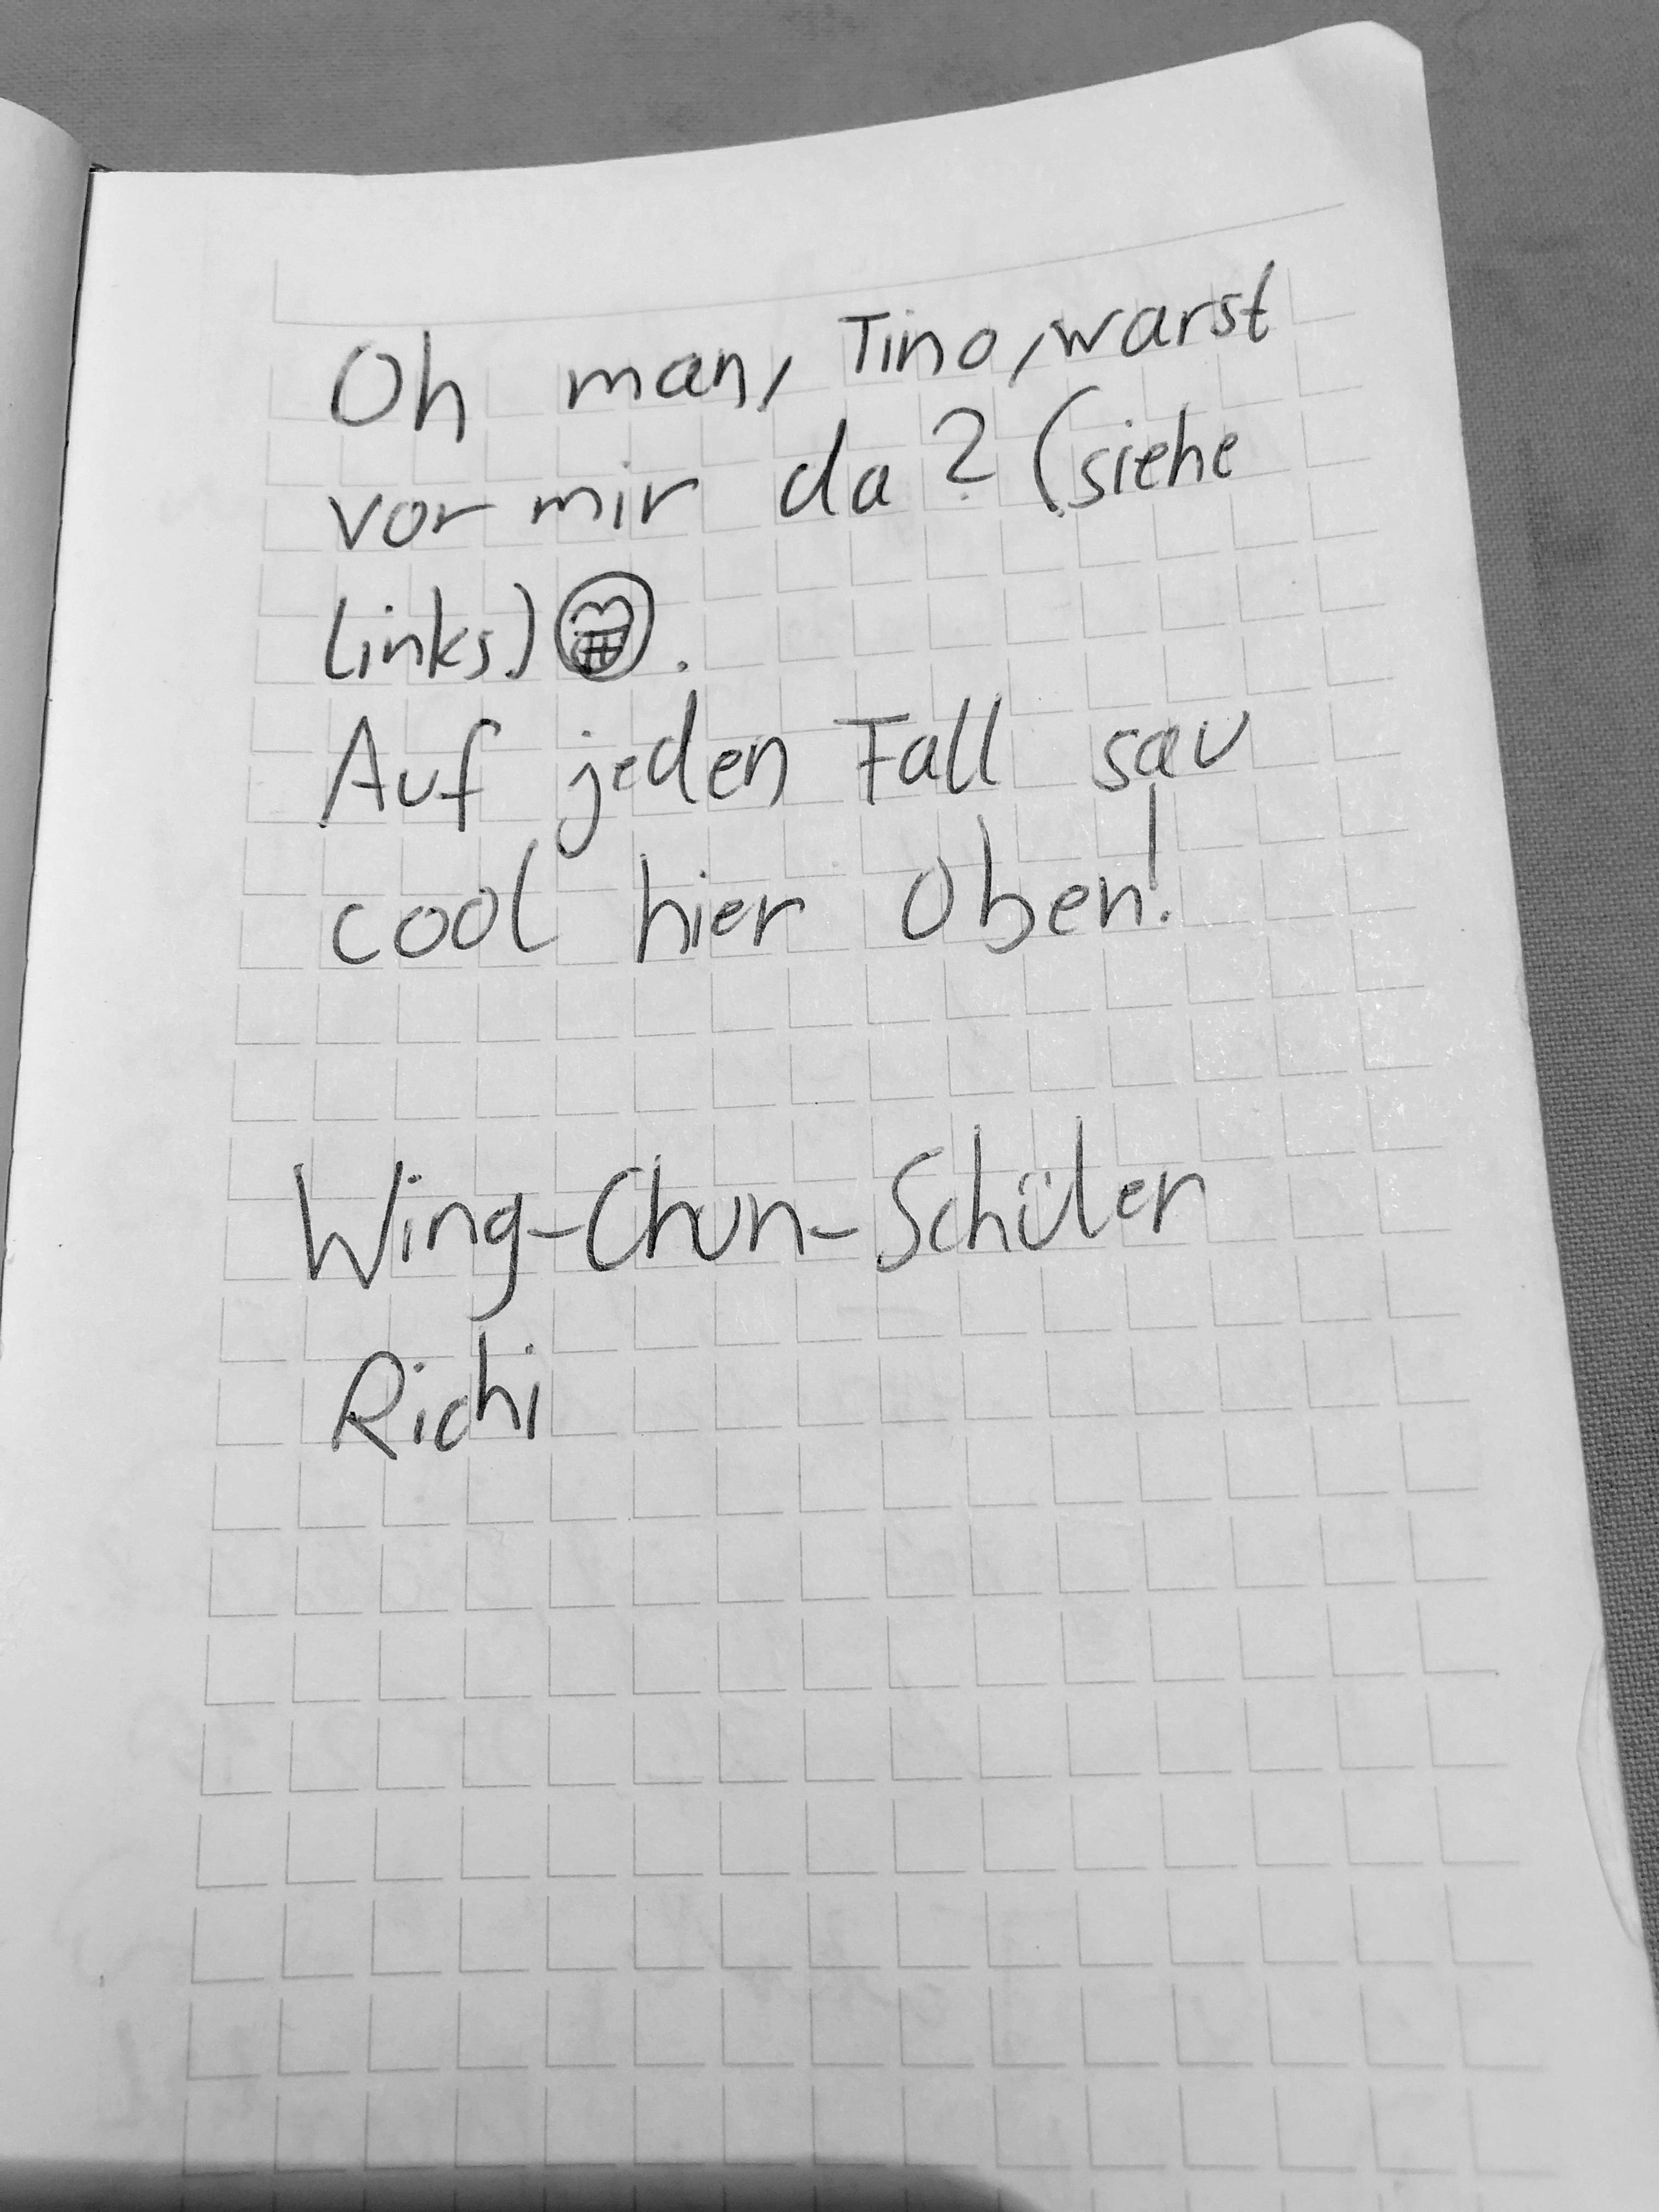 Oh man, Tino, warst
vor mir da? (siehe
links) 😁.
Auf jeden Fall sau
cool hier oben!
Wing-Chun-Schüler
Richi